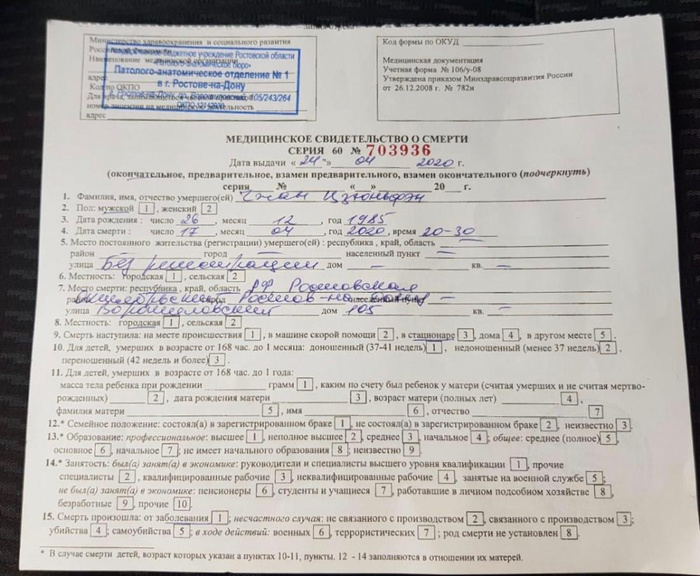 Министерство здравоохранения и социального развития
Наименование медицинской организации
адрес
Код по ОКПО
номер лицензии на медицинскую деятельность
адрес
Патолого-анатомическое отделение № 1
в г. Ростове-на-Дону
Код формы по ОКУД
Медицинская документация
Учетная форма № 106/у-08
Утверждена приказом Минздравсоцразвития России
от 26.12.2008 г. № 782н
МЕДИЦИНСКОЕ СВИДЕТЕЛЬСТВО О СМЕРТИ
СЕРИЯ 60 № 703936
Дата выдачи « 24 » 04 2020 г.
(окончательное, предварительное, взамен предварительного, взамен окончательного (подчеркнуть)
серия № « » 20 г.
1. Фамилия, имя, отчество умершего(ей)
2. Пол: мужской 1, женский 2
3. Дата рождения: число 26, месяц 12, год 1985
4. Дата смерти: число 17, месяц 04, год 2020, время 20-30
5. Место постоянного жительства (регистрации) умершего(ей): республика, край, область –
район – город – населенный пункт –
улица Без регистрации дом – кв. –
6. Местность: городская 1, сельская 2
7. Место смерти: республика, край, область РФ Ростовская
улица Ворошиловский дом 105 кв. –
8. Местность: городская 1, сельская 2
9. Смерть наступила: на месте происшествия 1, в машине скорой помощи 2, в стационаре 3, дома 4, в другом месте 5.
10. Для детей, умерших в возрасте от 168 час. до 1 месяца: доношенный (37-41 недель) 1, недоношенный (менее 37 недель) 2,
переношенный (42 недель и более) 3.
11. Для детей, умерших в возрасте от 168 час. до 1 года:
масса тела ребенка при рождении грамм 1, каким по счету был ребенок у матери (считая умерших и не считая мертво-
рожденных) 2, дата рождения матери 3, возраст матери (полных лет) 4,
фамилия матери 5, имя 6, отчество 7
12.* Семейное положение: состоял(а) в зарегистрированном браке 1, не состоял(а) в зарегистрированном браке 2, неизвестно 3.
13.* Образование: профессиональное: высшее 1, неполное высшее 2, среднее 3, начальное 4; общее: среднее (полное) 5,
основное 6, начальное 7; не имеет начального образования 8; неизвестно 9.
14.* Занятость: был(а) занят(а) в экономике: руководители и специалисты высшего уровня квалификации 1, прочие
специалисты 2, квалифицированные рабочие 3, неквалифицированные рабочие 4, занятые на военной службе 5;
не был(а) занят(а) в экономике: пенсионеры 6, студенты и учащиеся 7, работавшие в личном подсобном хозяйстве 8,
безработные 9, прочие 10.
15. Смерть произошла: от заболевания 1; несчастного случая: не связанного с производством 2, связанного с производством 3;
убийства 4; самоубийства 5; в ходе действий: военных 6, террористических 7; род смерти не установлен 8.
* В случае смерти детей, возраст которых указан в пунктах 10-11, пункты. 12 - 14 заполняются в отношении их матерей.